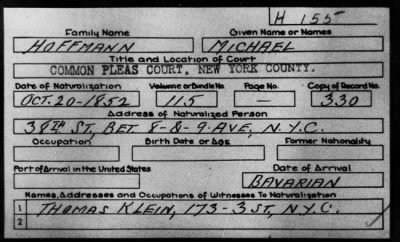 H 155
Family Name Given Name or Names
HOFFMANN MICHAEL
Title and Location of Court
COMMON PLEAS COURT, NEW YORK COUNTY.
Date of Naturalization Volume or Bundle No. Page No. Copy of Record No.
OCT. 20-1852 115 — 330
Address of Naturalized Person
38TH ST, BET 8-&-9-AVE, N.Y.C.
Occupation Birth Date or Age Former Nationality
Port of Arrival in the United States Date of Arrival
BAVARIAN
Names, Addresses and Occupations of Witnesses To Naturalization
1 THOMAS KLEIN, 173-3 ST, N.Y.C.
2